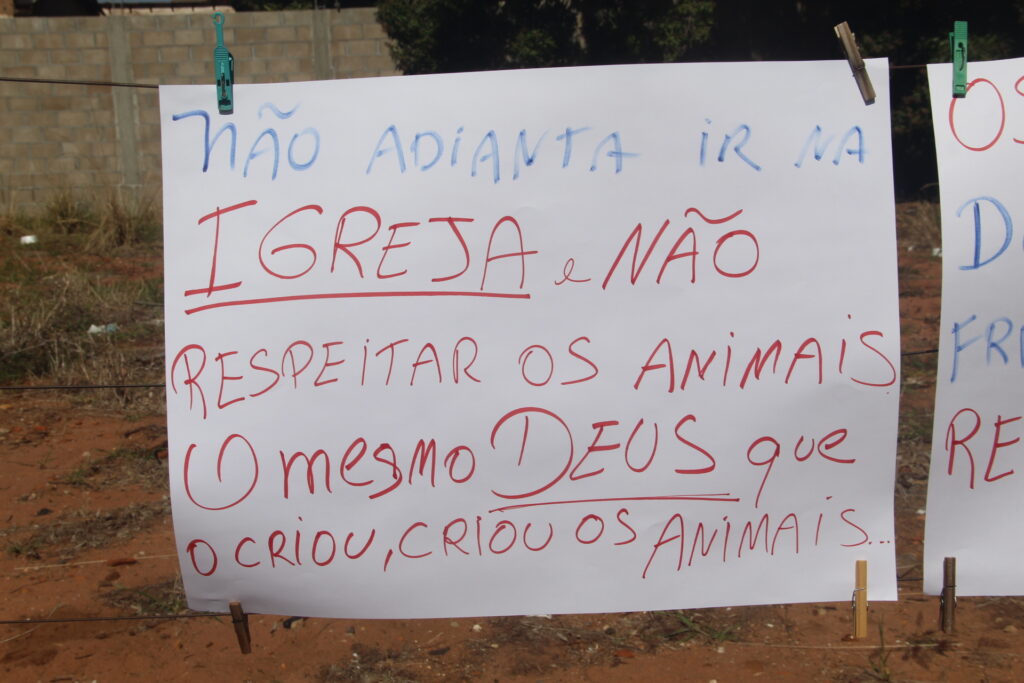 NÃO ADIANTA IR NA
IGREJA e NÃO
RESPEITAR OS ANIMAIS
O mesmo DEUS que
O CRIOU, CRIOU OS ANIMAIS...
OS